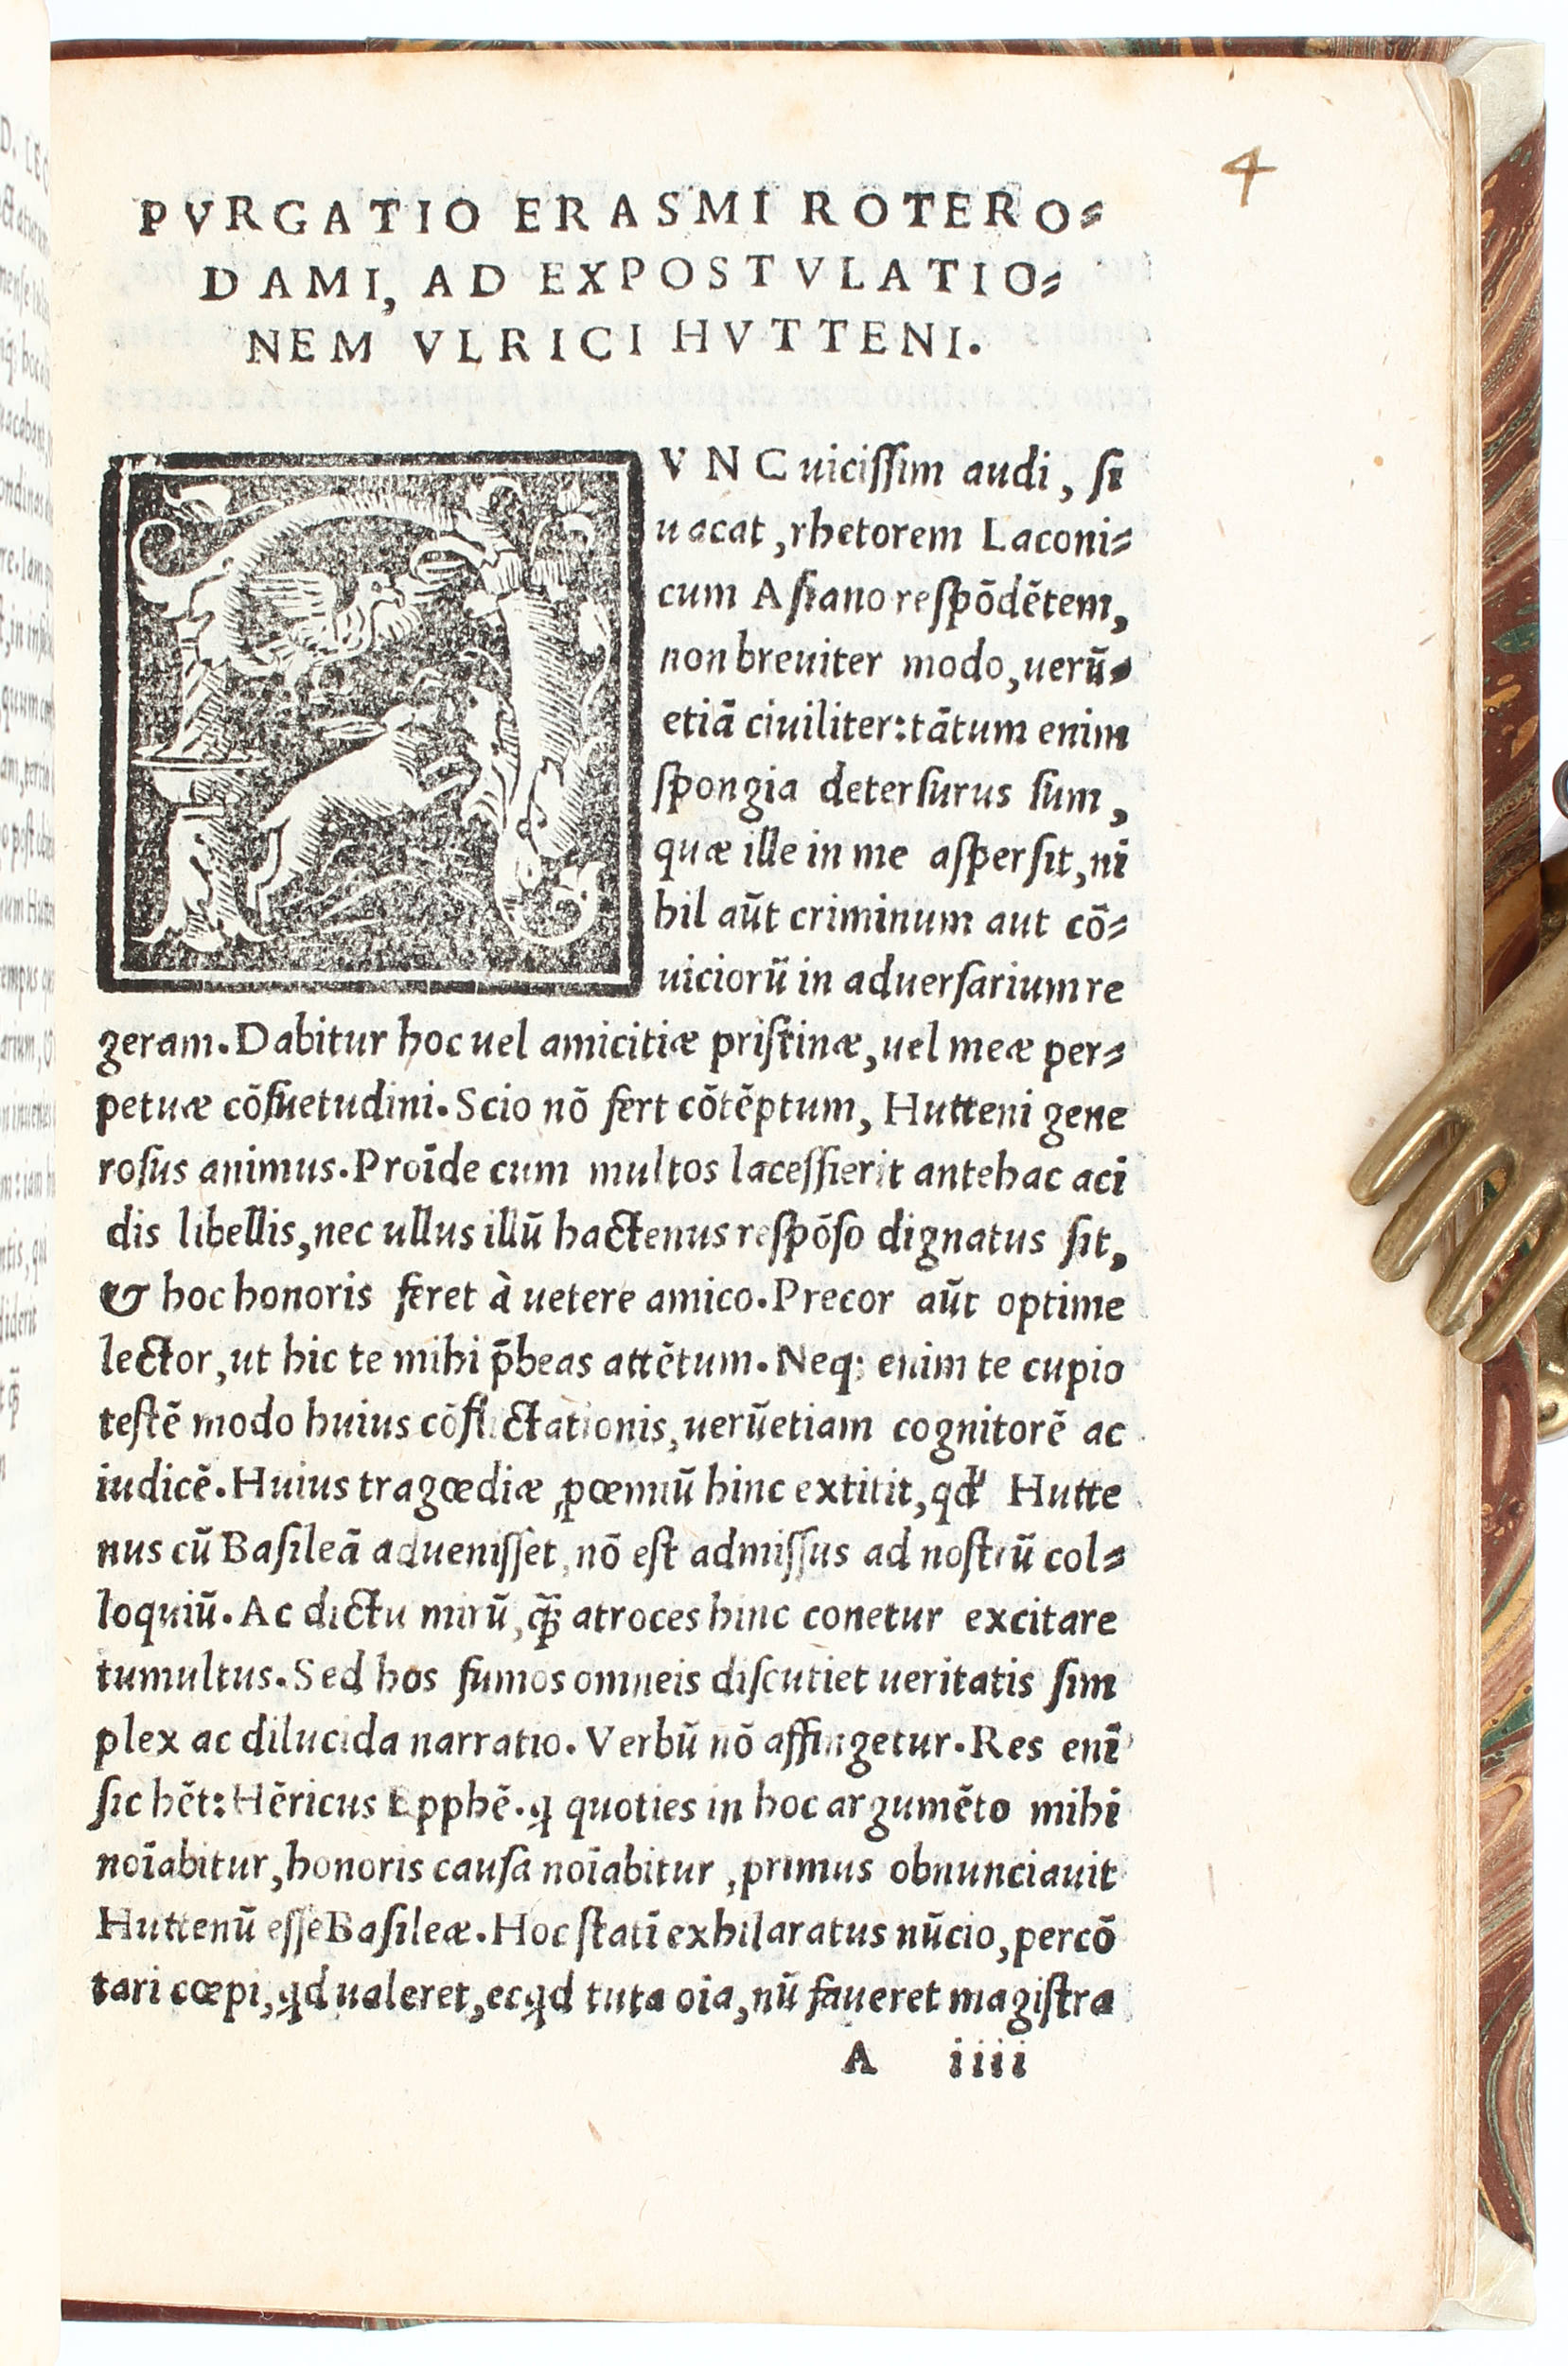 4
PVRGATIO ERASMI ROTERO⸗
DAMI, AD EXPOSTVLATIO⸗
NEM VLRICI HVTTENI.
NVNC uiciſſim audi, ſi
uacat, rhetorem Laconi⸗
cum Aſiano reſpōdētem,
non breuiter modo, uerū⸗
etiā ciuiliter: tātum enim
ſpongia deterſurus ſum,
quæ ille in me aſperſit, ni
hil aūt criminum aut cō⸗
uiciorū in aduerſarium re
geram. Dabitur hoc uel amicitiæ priſtinæ, uel meæ per⸗
petuæ cōſuetudini. Scio nō fert cōtēptum, Hutteni gene
roſus animus. Proīde cum multos laceſſierit antehac aci
dis libellis, nec ullus illū hactenus reſpōſo dignatus ſit,
& hoc honoris feret à uetere amico. Precor aūt optime
lector, ut hic te mihi p̄beas attētum. Neq; enim te cupio
teſtē modo huius cōflictationis, uerūetiam cognitorē ac
iudicē. Huius tragœdiæ ꝓœmiū hinc extitit, qđ Hutte
nus cū Baſileā adueniſſet, nō eſt admiſſus ad noſtrū col⸗
loquiū. Ac dictu mirū, q̄ꝫ atroces hinc conetur excitare
tumultus. Sed hos fumos omneis diſcutiet ueritatis ſim
plex ac dilucida narratio. Verbū nō affingetur. Res enī
ſic hēt: Hēricus Epphē. ꝗ quoties in hoc argumēto mihi
noīabitur, honoris cauſa noīabitur, primus obnunciauit
Huttenū eſſe Baſileæ. Hoc ſtatī exhilaratus nūcio, percō
tari cœpi, ꝗd ualeret, ecꝗd tuta oīa, nū faueret magiſtra
A iiii